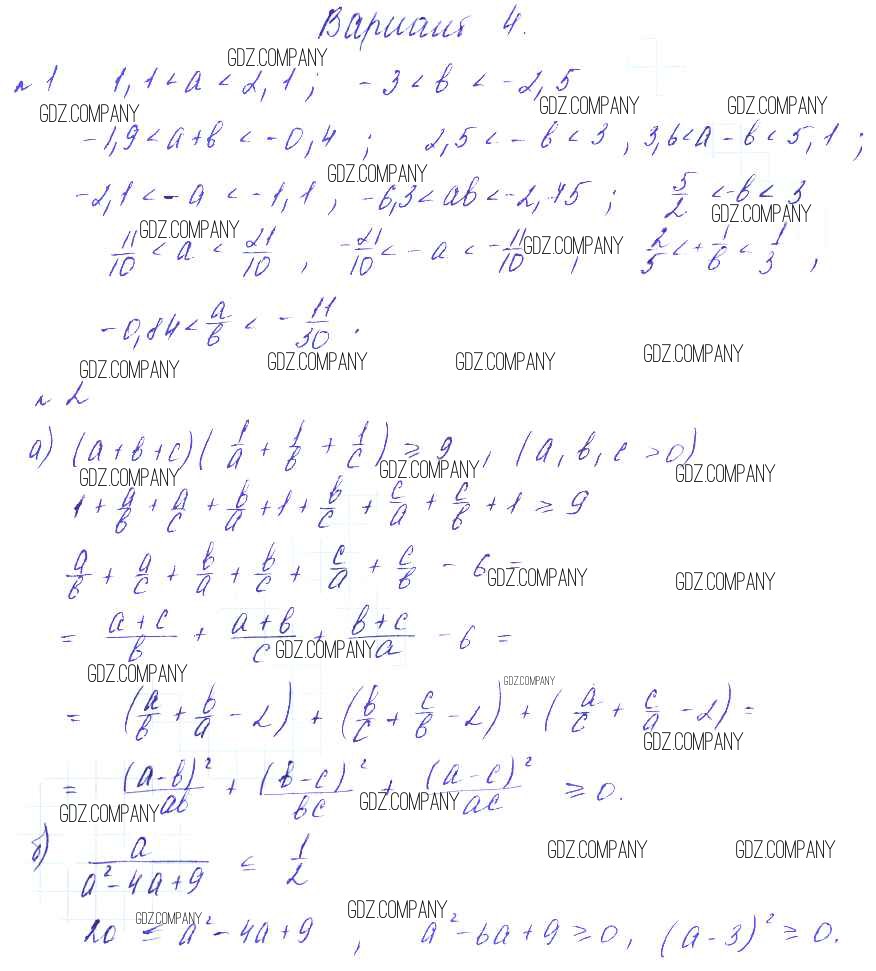 Вариант 4.
GDZ.COMPANY
№1 1,1 < a < 2,1 ; -3 < b < -2,5
GDZ.COMPANY GDZ.COMPANY GDZ.COMPANY
-1,9 < a+b < -0,4 ; 2,5 < -b < 3 , 3,6 < a-b < 5,1 ;
GDZ.COMPANY
-2,1 < -a < -1,1 , -6,3 < ab < -2,75 ; 5/2 < -b < 3
GDZ.COMPANY GDZ.COMPANY GDZ.COMPANY
11/10 < a < 21/10 , -21/10 < -a < -11/10 , 2/5 < + 1/b < 1/3 ,
-0,84 < a/b < -11/30 .
GDZ.COMPANY GDZ.COMPANY GDZ.COMPANY GDZ.COMPANY
№2
а) (a+b+c)(1/a + 1/b + 1/c) ≥ 9 , (a, b, c > 0)
GDZ.COMPANY GDZ.COMPANY GDZ.COMPANY
1 + a/b + a/c + b/a + 1 + b/c + c/a + c/b + 1 ≥ 9
a/b + a/c + b/a + b/c + c/a + c/b - 6 =
GDZ.COMPANY GDZ.COMPANY
= (a+c)/b + (a+b)/c + (b+c)/a - 6 =
GDZ.COMPANY GDZ.COMPANY GDZ.COMPANY
= (a/b + b/a - 2) + (b/c + c/b - 2) + (a/c + c/a - 2) =
GDZ.COMPANY
= (a-b)²/ab + (b-c)²/bc + (a-c)²/ac ≥ 0.
GDZ.COMPANY GDZ.COMPANY
б) a/(a²-4a+9) ≤ 1/2
GDZ.COMPANY GDZ.COMPANY
GDZ.COMPANY GDZ.COMPANY
20 ≤ a²-4a+9 , a²-6a+9 ≥ 0, (a-3)² ≥ 0.